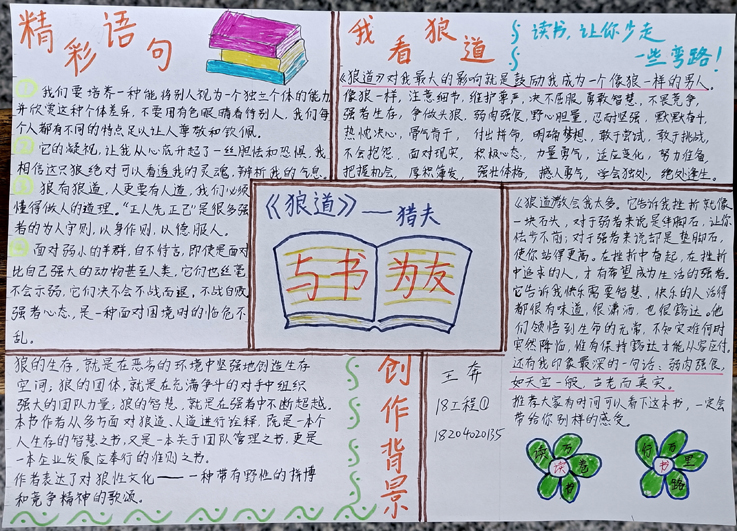 精彩语句
我们要培养一种能将别人视为一个独立个体的能力
并欣赏这种个体差异，不要用有色眼睛看待别人，我们每
个人都有不同的特点足以让人尊敬和钦佩。
它的凝视，让我从心底升起了一丝胆怯和恐惧，我
相信这只狼绝对可以看透我的灵魂，辨析我的气息。
狼有狼道，人更要有人道，我们必须
懂得做人的道理。“正人先正己”是很多强
者的为人守则，以身作则，以德服人。
面对弱小的羊群，自不待言，即使是面对
比自己强大的动物甚至人类，它们也丝毫
不会示弱，它们决不会不战而退。不战自败
强者心态，是一种面对困境时的临危不
乱。
我看狼道
读书，让你少走
一些弯路！
《狼道》对我最大的影响就是鼓励我成为一个像狼一样的男人。
像狼一样，注意细节，维护尊严，决不屈服，勇敢智慧，不畏竞争，
强者生存，争做头狼，弱肉强食，野心胆量，忍耐坚强，默默奋斗，
热忱决心，勇气骨干，付出持命，明确梦想，敢于尝试，敢于挑战，
不会抱怨，面对现实，积极心态，力量勇气，适应变化，努力准备，
把握机会，厚积薄发，强壮体格，撼人勇气，学会独处，绝处逢生。
《狼道》——猎夫
与书为友
《狼道》教会我太多。它告诉我挫折就像
一块石头，对于弱者来说是绊脚石，让你
怯步不前；对于强者来说却是垫脚石，
使你站得更高。在挫折中奋起，在挫折
中追求的人，才有希望成为生活的强者。
它告诉我快乐需要智慧，快乐的人活得
都很有味道，很潇洒，也很豁达。他
们领悟到生命的无常，不知灾难何时
突然降临，唯有保持豁达才能从容应付。
还有我印象最深的一句话：弱肉强食，
如天空一般，古老而真实。
推荐大家有时间可以看下这本书，一定会
带给你别样的感觉
狼的生存，就是在恶劣的环境中坚强地创造生存
空间；狼的团体，就是在充满争斗的对手中组织
强大的团队力量；狼的智慧，就是在强者中不断超越。
本书作者从多方面对狼道、人道进行诠释，既是一本个
人生存的智慧之书，又是一本关于团队管理之书，更是
一本企业发展应奉行的准则之书。
作者表达了对狼性文化——一种带有野性的拼搏
和竞争精神的歌颂。
创作背景
王奔
18工程①
18204020135
读万
读
书
行万里路
书